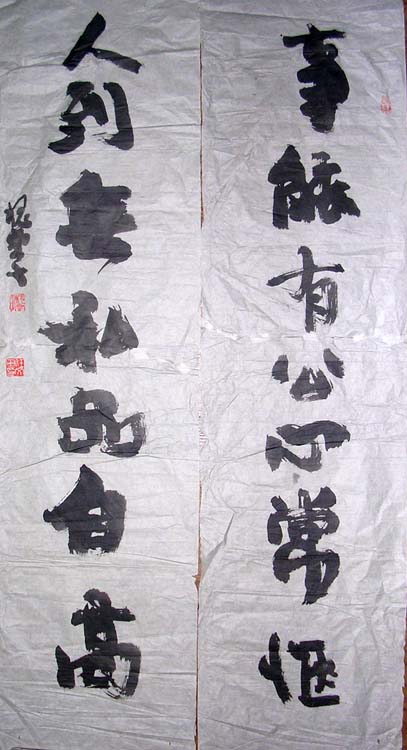 事能有公心常惬
人到無私品自高